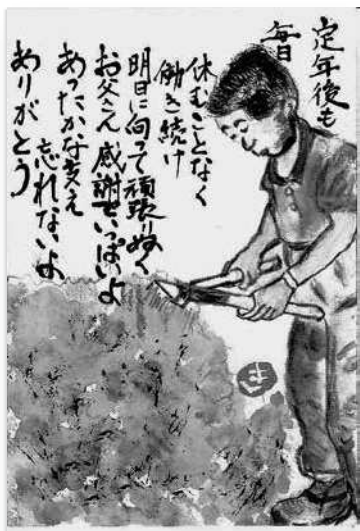 定年後も
毎日
休むことなく
働き続け
明日に向って頑張りぬく
お父さん感謝でいっぱいよ
あったかな支え
忘れないよ
ありがとう